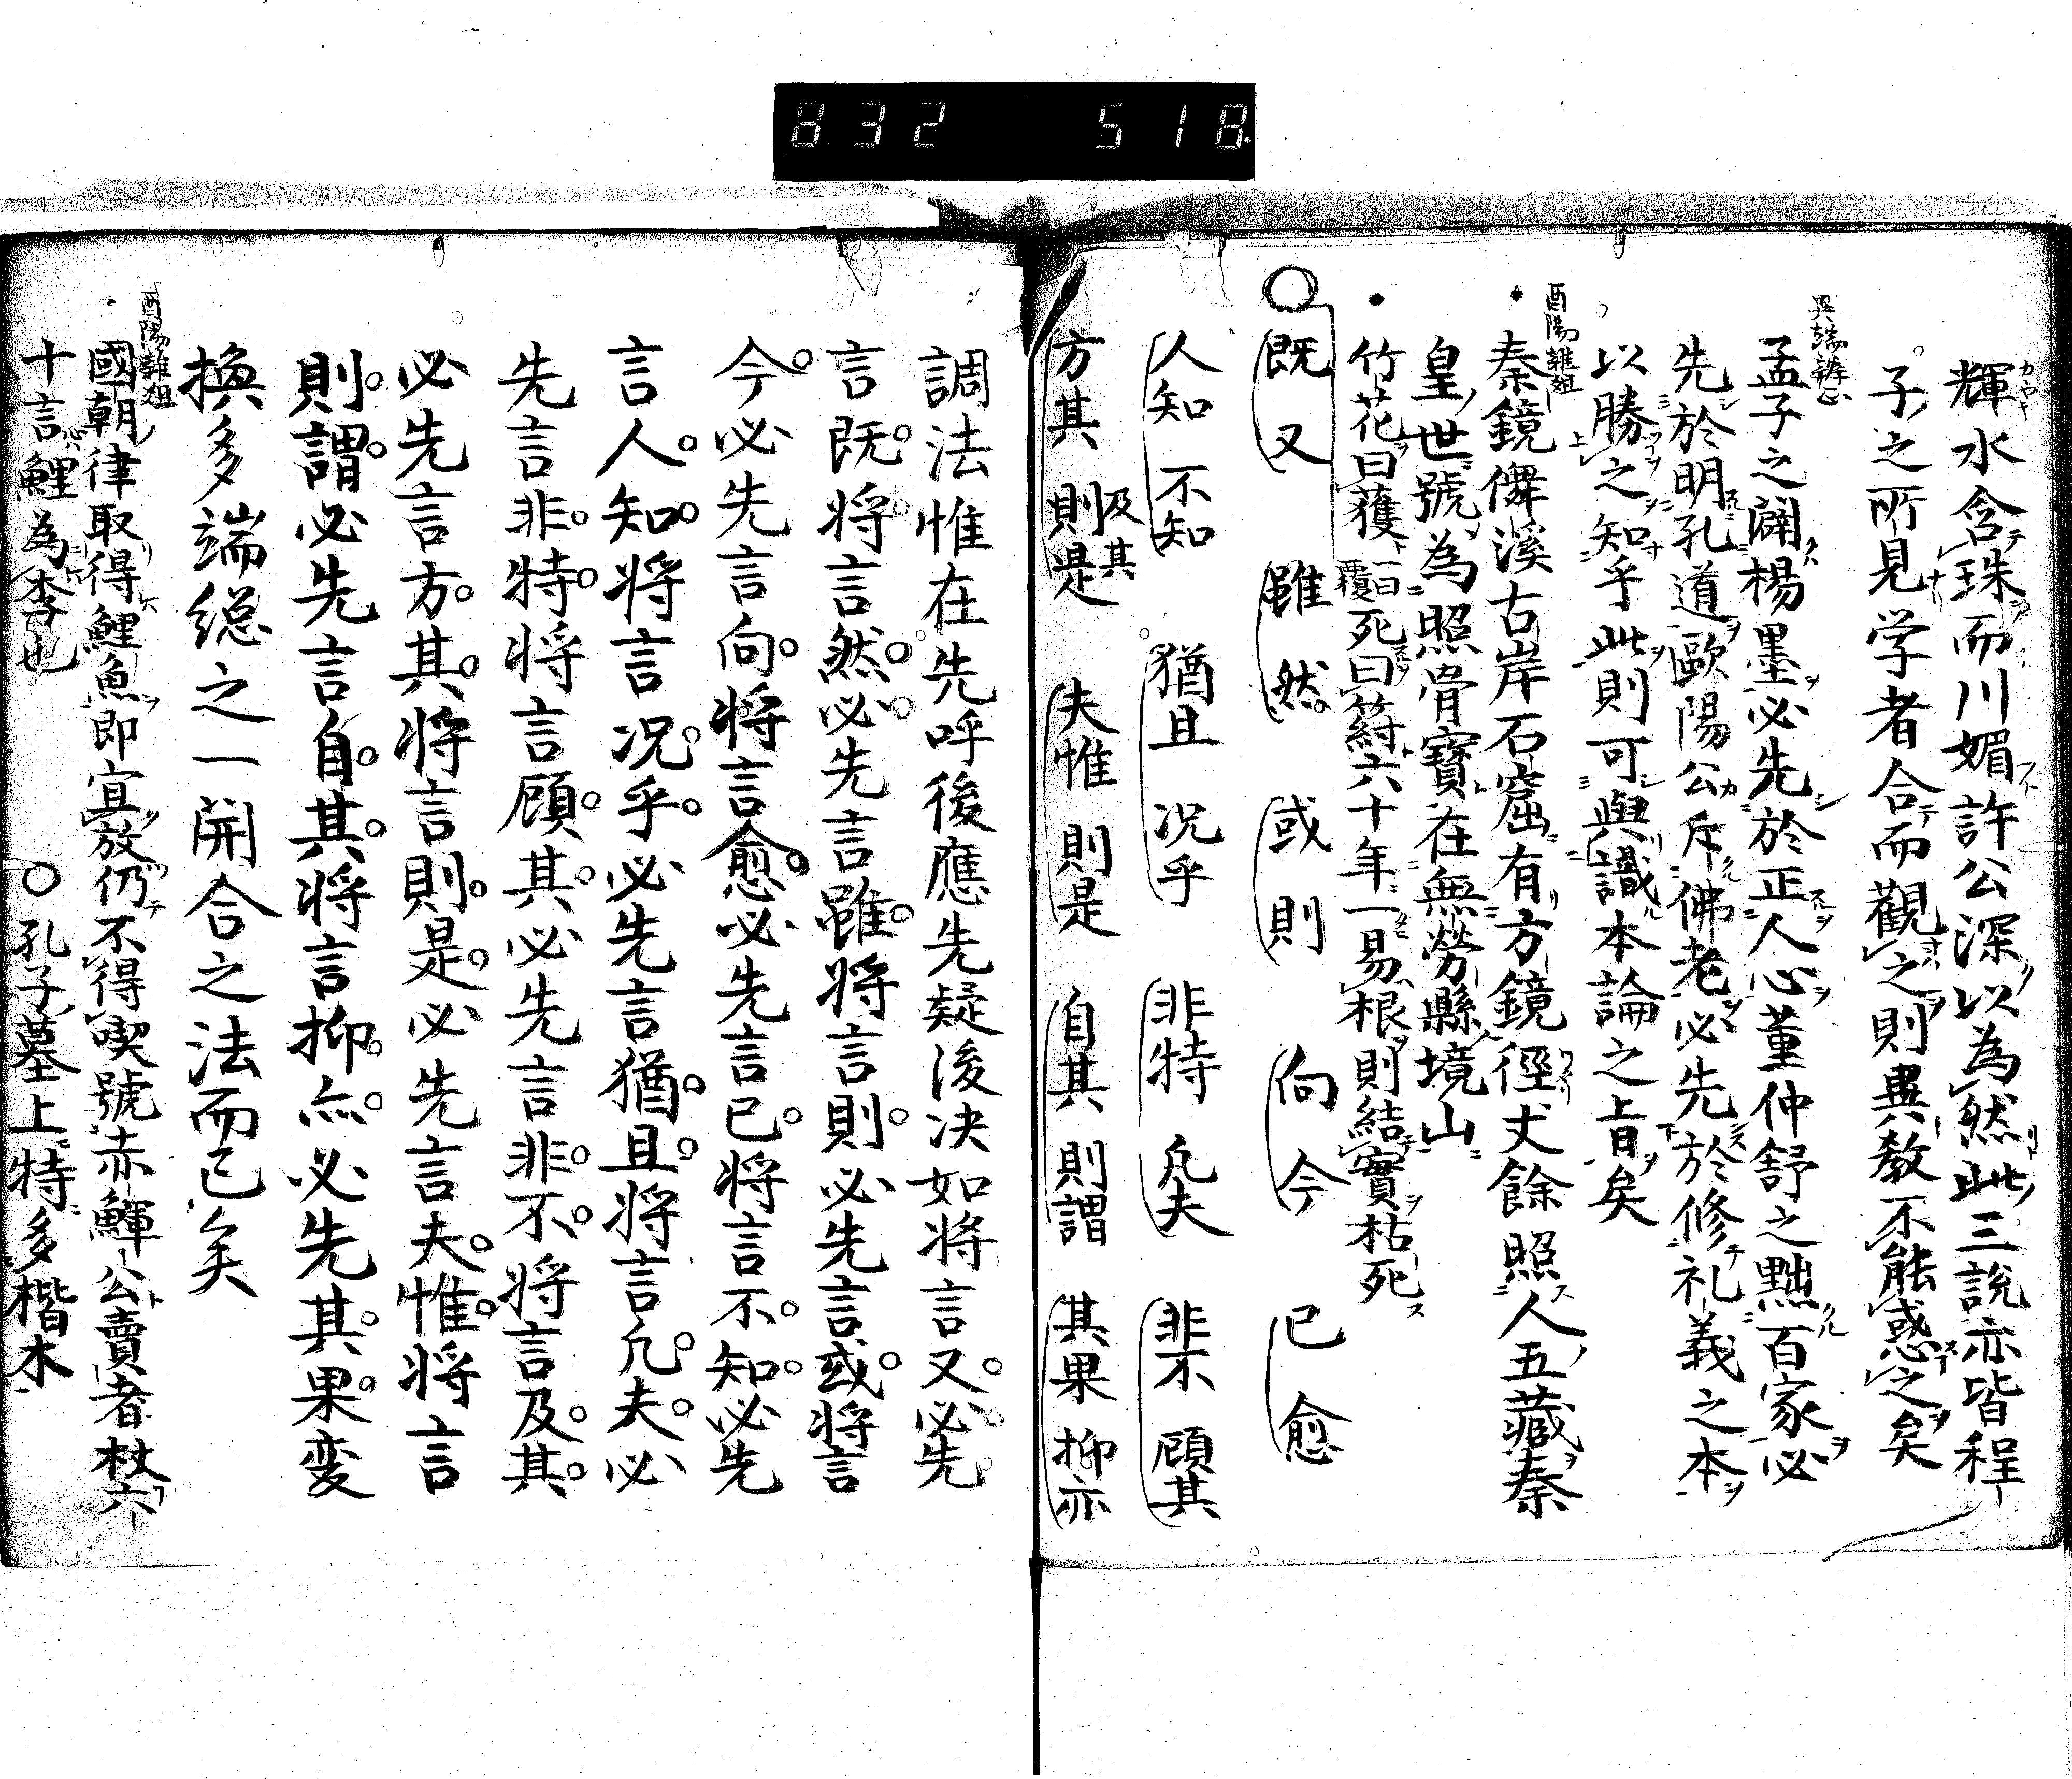 832 518
輝水含珠而川媚許公深以為然此三說亦皆程
子之所見学者合而觀之則異教不能惑之矣
異端辨心
孟子之闢楊墨必先於正人心董仲舒之黜百家必
先於明孔道歐陽公斥佛老必先於修礼義之本
以勝之知乎此則可與識本論之上旨矣
酉陽雑俎
秦鏡儛溪古岸石窟有方鏡徑丈餘照人五藏秦
皇世號為照骨寶在無勞縣境山
竹花曰獲一曰覆死曰䈙六十年一易根則結實枯死
既又 雖然 或則 向今 已愈
人知不知 猶且况乎 非特凡夫 非不顧其
方其則是 及其 夫惟則是 自其則謂 其果抑亦
調法惟在先呼後應先疑後决如将言又必先
言既将言然必先言雖将言則必先言或将言
今必先言向将言愈必先言已将言不知必先
言人知将言况乎必先言猶且将言凡夫必
先言非特将言顧其必先言非不将言及其
必先言方其将言則是必先言夫惟将言
則謂必先言自其将言抑亦必先其果変
換多端総之一開合之法而已矣
酉陽雑俎
國朝律取得鯉魚即宜放仍不得喫號赤鯶公賣者杖六
十言鯉為李也 ○孔子墓上特多楷木